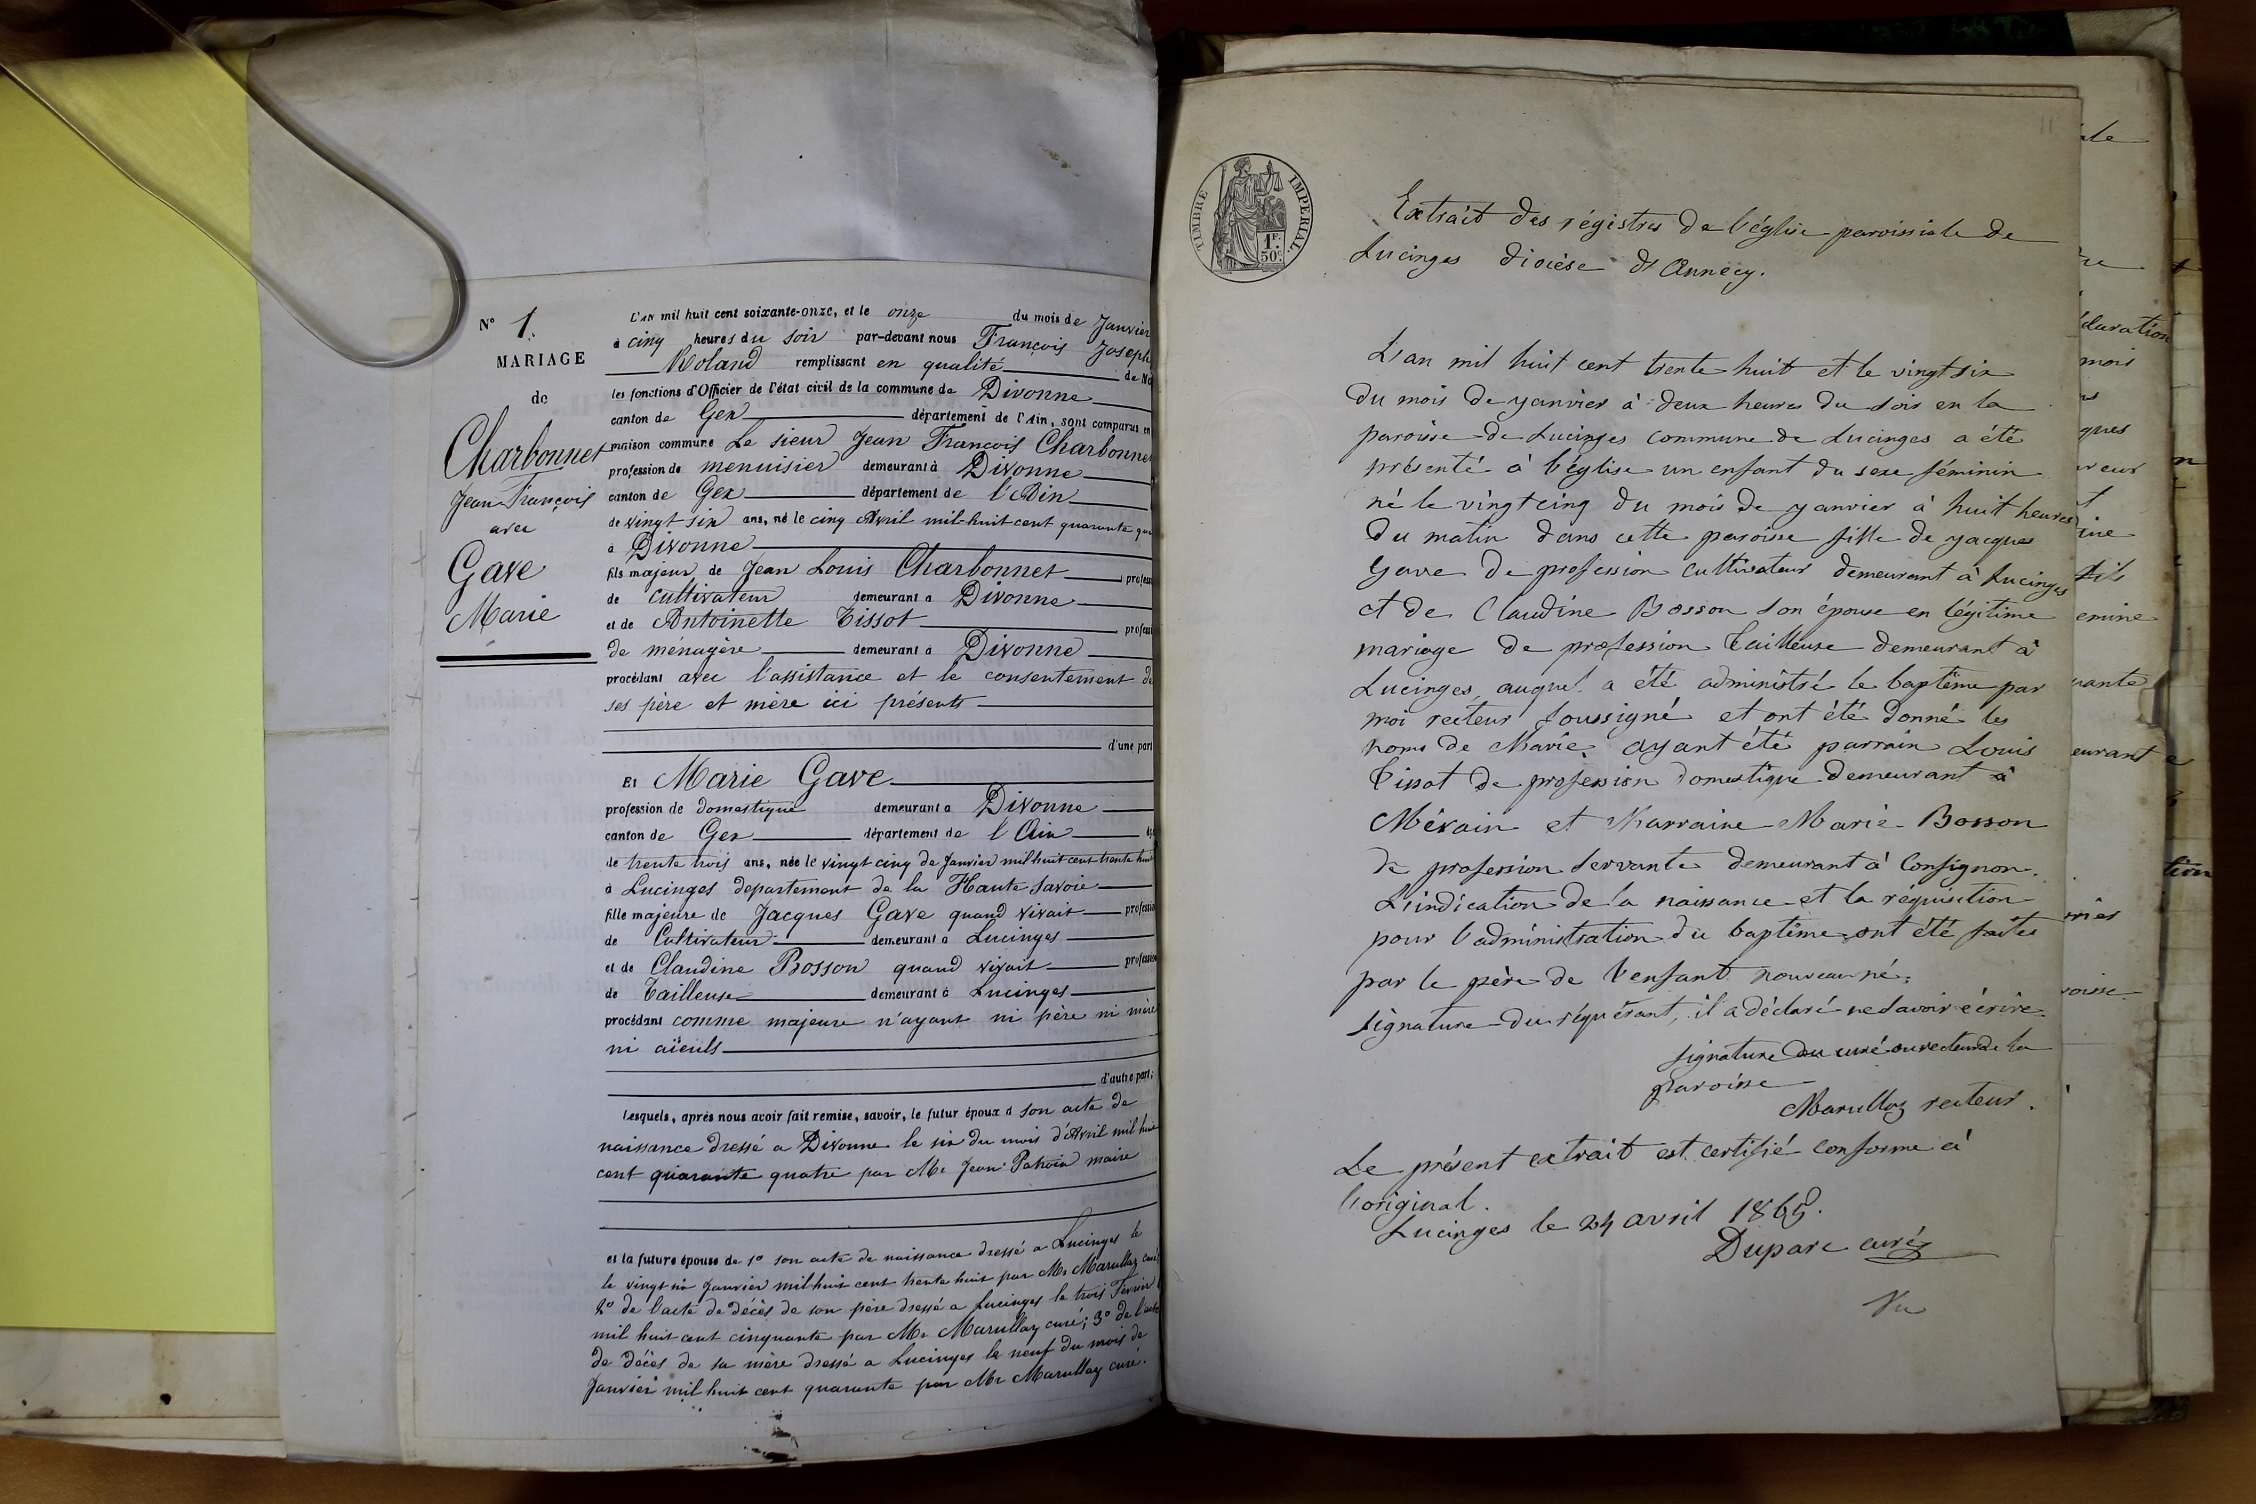 N° 1.
MARIAGE
de
Charbonnet
Jean François
avec
Gave
Marie
L'AN mil huit cent soixante-onze, et le onze du mois de Janvier
à cinq heures du soir par-devant nous François Joseph
Roland remplissant en qualité de
les fonctions d'Officier de l'état civil de la commune de Divonne
canton de Gex département de l'Ain, sont comparus en
maison commune Le sieur Jean François Charbonnet
profession de menuisier demeurant à Divonne
canton de Gex département de l'Ain
de vingt six ans, né le cinq Avril mil huit cent quarante
à Divonne
fils majeur de Jean Louis Charbonnet
de cultivateur demeurant à Divonne
et de Antoinette Tissot
de ménagère demeurant à Divonne
procédant avec l'assistance et le consentement de
ses père et mère ici présents
d'une part
Et Marie Gave
profession de domestique demeurant à Divonne
canton de Gex département de l'Ain
de trente trois ans, née le vingt cinq de Janvier mil huit cent trente huit
à Lucinges departement de la Haute Savoie
fille majeure de Jacques Gave quand vivait profession
de Cultivateur demeurant à Lucinges
et de Claudine Bosson quand vivait profession
de Tailleuse demeurant à Lucinges
procédant comme majeure n'ayant ni père ni mère
ni aïeuls
d'autre part;
Lesquels, après nous avoir fait remise, savoir, le futur époux d son acte de
naissance dressé a Divonne le six du mois d'Avril mil huit
cent quarante quatre par Mr Jean maire
et la future épouse de 1° son acte de naissance dressé a Lucinges le
le vingt six Janvier mil huit cent trente huit par Mr Marullaz curé
2° de l'acte de décès de son père dressé a Lucinges le trois Février
mil huit cent cinquante par Mr Marullaz curé; 3° de l'acte
de décès de sa mère dressé a Lucinges le neuf du mois de
Janvier mil huit cent quarante par Mr Marullaz curé.
TIMBRE IMPERIAL
1F.
50c.
11
Extrait des régistres de l'église paroissiale de
Lucinges diocèse d'Annecy.
L'an mil huit cent trente huit et le vingt six
du mois de yanvier à deux heures du soir en la
paroisse de Lucinges commune de Lucinges a été
présenté à l'église un enfant du sexe féminin
né le vingt cinq du mois de yanvier à huit heures
du matin dans cette paroisse fille de yacques
Gave de profession cultivateur demeurant à Lucinges
et de Claudine Bosson son épouse en légitime
mariage de profession Tailleuse demeurant à
Lucinges, auquel a été administré le baptême par
moi recteur soussigné et ont été donné les
noms de Marie, ayant été parrain Louis
Tissot de profession domestique demeurant à
et Marraine Marie Bosson
de profession servante demeurant à Consignon.
L'indication de la naissance et la réquisition
pour l'administration du baptême ont été faites
par le père de l'enfant nouveau né.
Signature du réquérant, il a déclaré ne savoir écrire.
Signature du curé ou recteur de la
paroisse
Marullaz recteur.
Le présent extrait est certifié conforme à
l'original.
Lucinges le 24 avril 1865.
Duparc curé
Vu